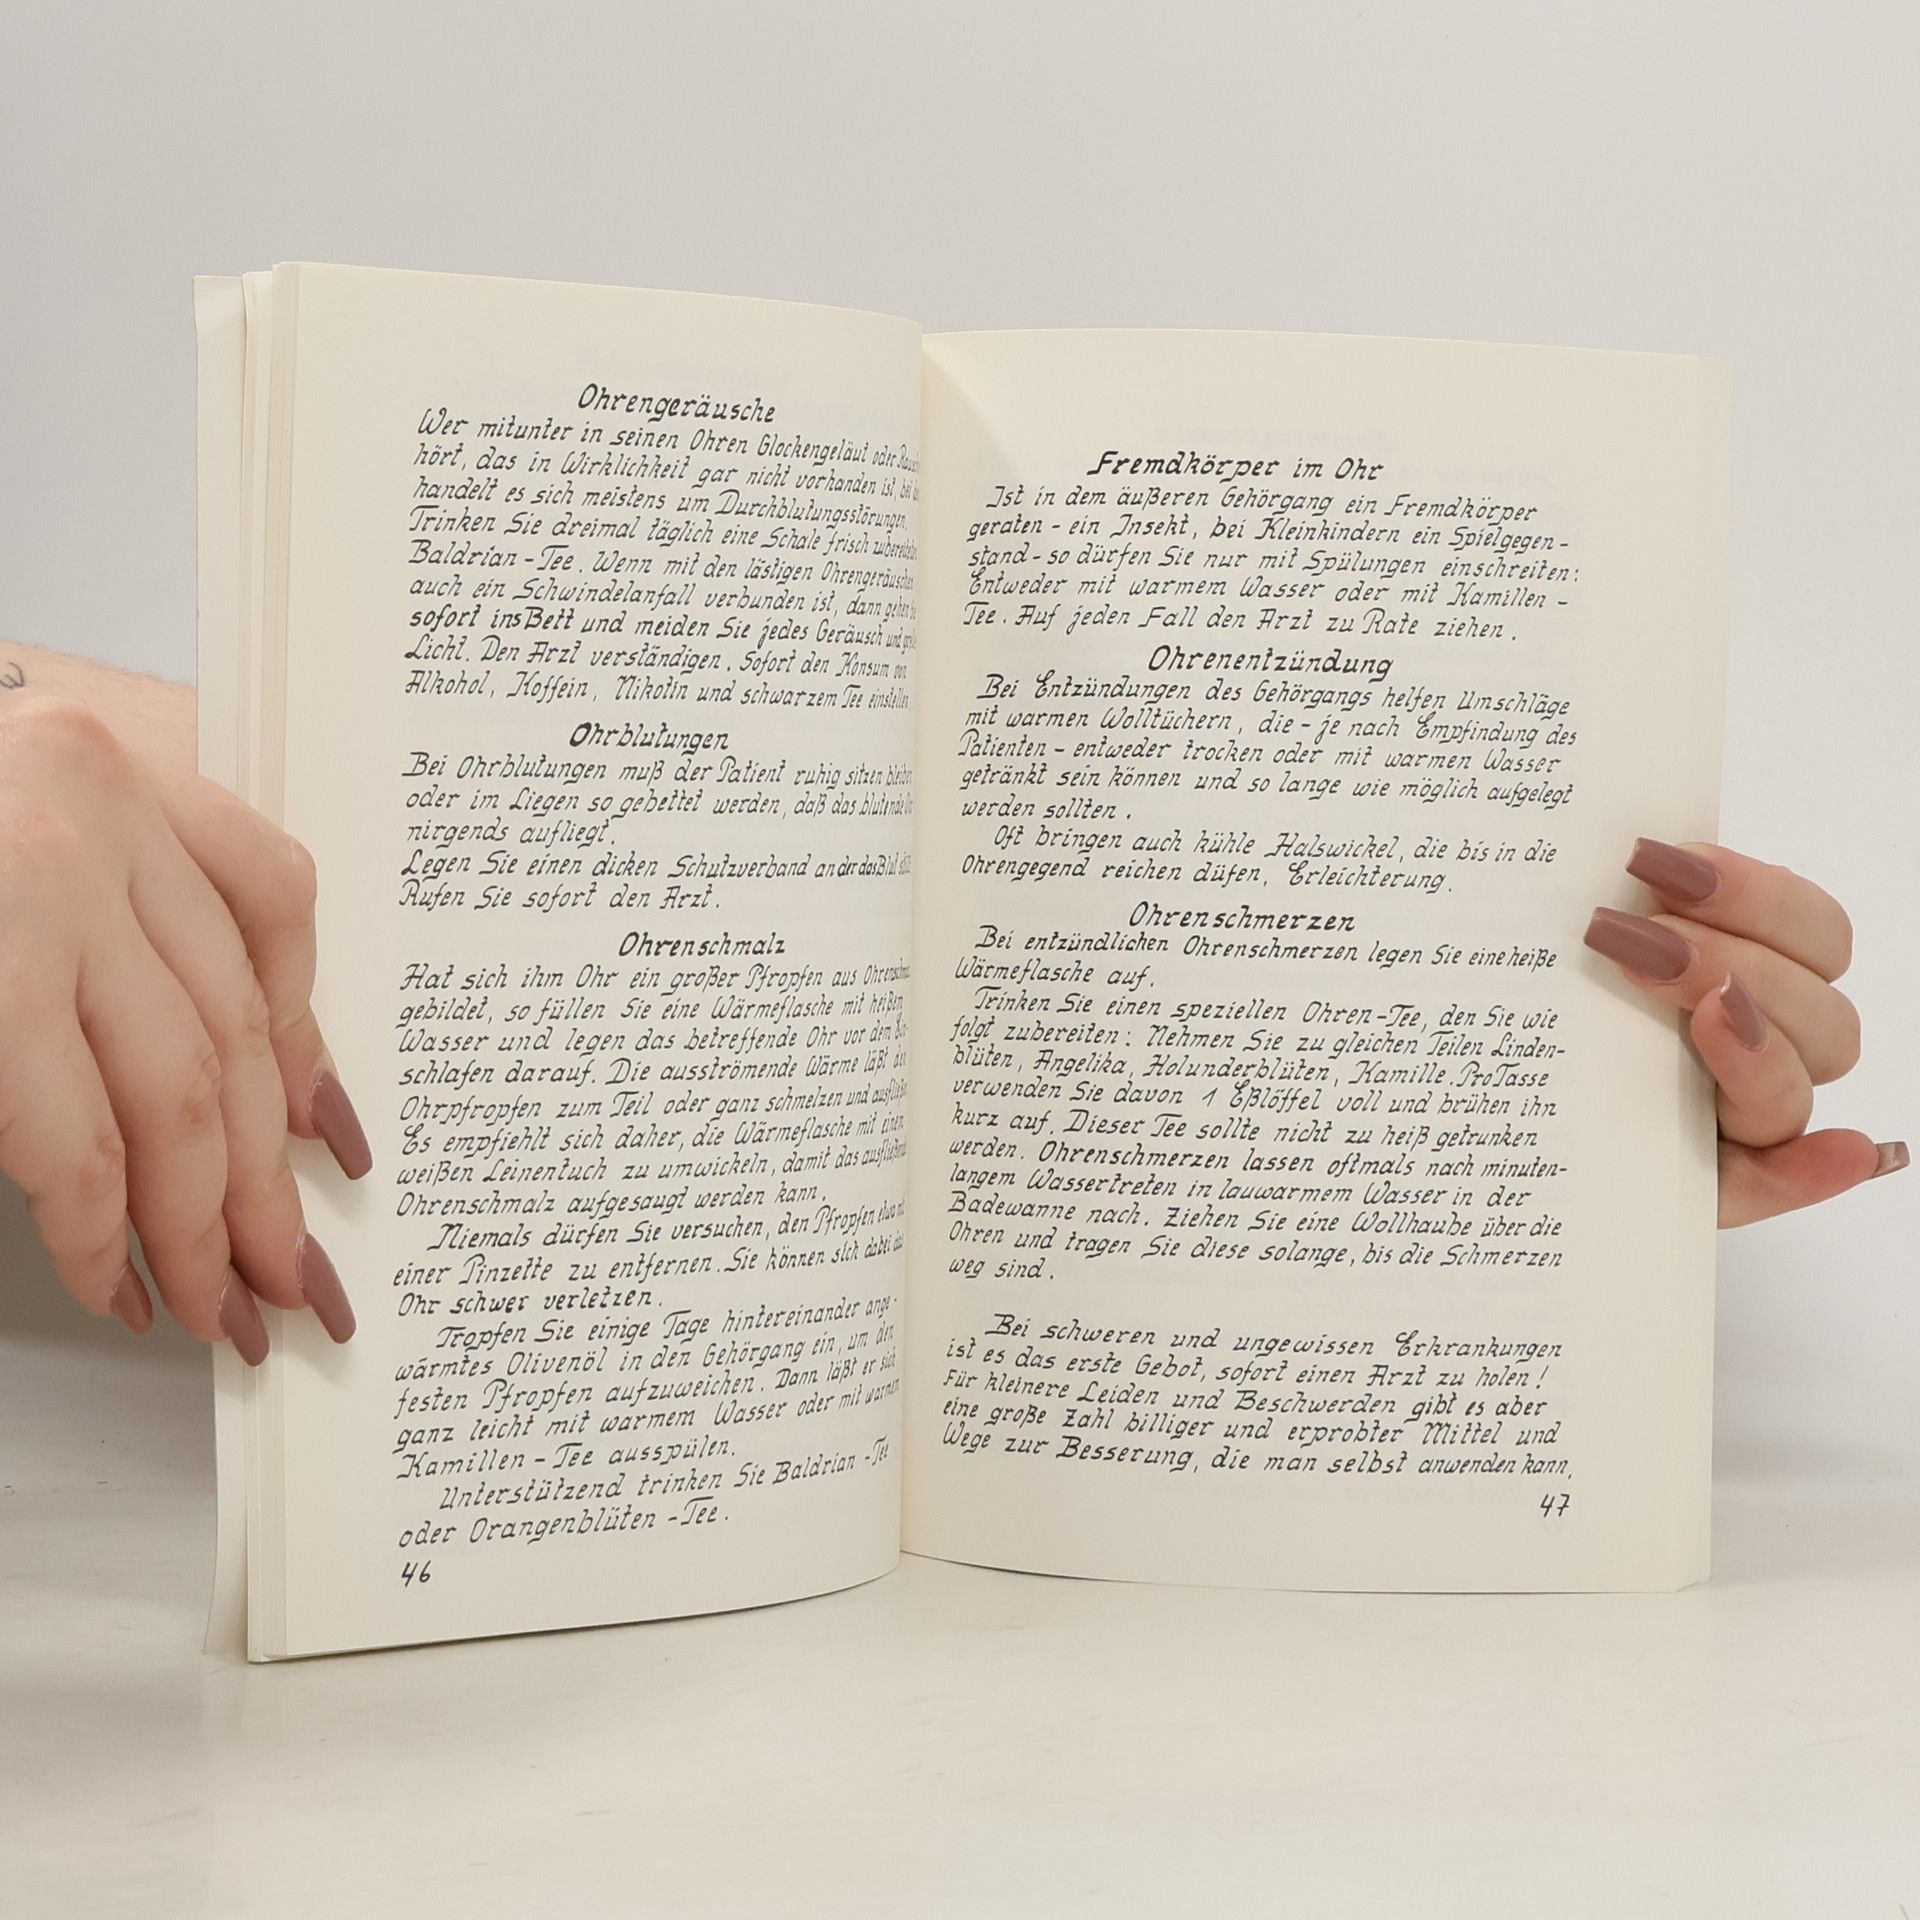 Ohrengeräusche
Wer mitunter in seinen Ohren Glockengeläut oder
hört, das in Wirklichkeit gar nicht vorhanden ist, bei
handelt es sich meistens um Durchblutungsstörungen.
Trinken Sie dreimal täglich eine Schale frisch
Baldrian-Tee. Wenn mit den lästigen Ohrengeräuschen
auch ein Schwindelanfall verbunden ist, dann gehen
sofort ins Bett und meiden Sie jedes Geräusch und
Licht. Den Arzt verständigen. Sofort den Konsum von
Alkohol, Koffein, Nikotin und schwarzem Tee einstellen
Ohrblutungen
Bei Ohrblutungen muß der Patient ruhig sitzen
oder im Liegen so gebettet werden, daß das blutende
nirgends aufliegt.
Legen Sie einen dicken Schutzverband an der das Blut
Rufen Sie sofort den Arzt.
Ohrenschmalz
Hat sich ihm Ohr ein großer Pfropfen aus
gebildet, so füllen Sie eine Wärmeflasche mit heißem
Wasser und legen das betreffende Ohr vor dem
schlafen darauf. Die ausströmende Wärme läßt den
Ohrpfropfen zum Teil oder ganz schmelzen und
Es empfiehlt sich daher, die Wärmeflasche mit einem
weißen Leinentuch zu umwickeln, damit das
Ohrenschmalz aufgesaugt werden kann.
Niemals dürfen Sie versuchen, den Pfropfen etwa mit
einer Pinzette zu entfernen. Sie können sich dabei das
Ohr schwer verletzen.
Tropfen Sie einige Tage hintereinander ange-
wärmtes Olivenöl in den Gehörgang ein, um den
festen Pfropfen aufzuweichen. Dann läßt er sich
ganz leicht mit warmem Wasser oder mit warmen
Kamillen-Tee ausspülen.
Unterstützend trinken Sie Baldrian-Tee
oder Orangenblüten-Tee.
46
Fremdkörper im Ohr
Ist in dem äußeren Gehörgang ein Fremdkörper
geraten - ein Insekt, bei Kleinkindern ein Spielgegen-
stand - so dürfen Sie nur mit Spülungen einschreiten:
Entweder mit warmem Wasser oder mit Kamillen-
Tee. Auf jeden Fall den Arzt zu Rate ziehen.
Ohrenentzündung
Bei Entzündungen des Gehörgangs helfen Umschläge
mit warmen Wolltüchern, die - je nach Empfindung des
Patienten - entweder trocken oder mit warmen Wasser
getränkt sein können und so lange wie möglich aufgelegt
werden sollten.
Oft bringen auch kühle Halswickel, die bis in die
Ohrengegend reichen düfen, Erleichterung.
Ohrenschmerzen
Bei entzündlichen Ohrenschmerzen legen Sie eine heiße
Wärmeflasche auf.
Trinken Sie einen speziellen Ohren-Tee, den Sie wie
folgt zubereiten: Nehmen Sie zu gleichen Teilen Linden-
blüten, Angelika, Holunderblüten, Kamille. Pro Tasse
verwenden Sie davon 1 Eßlöffel voll und brühen ihn
kurz auf. Dieser Tee sollte nicht zu heiß getrunken
werden. Ohrenschmerzen lassen oftmals nach minuten-
langem Wassertreten in lauwarmem Wasser in der
Badewanne nach. Ziehen Sie eine Wollhaube über die
Ohren und tragen Sie diese solange, bis die Schmerzen
weg sind.
Bei schweren und ungewissen Erkrankungen
ist es das erste Gebot, sofort einen Arzt zu holen!
Für kleinere Leiden und Beschwerden gibt es aber
eine große Zahl billiger und erprobter Mittel und
Wege zur Besserung, die man selbst anwenden kann.
47